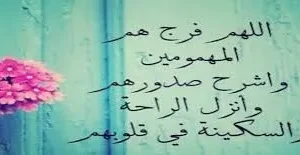 اللهم فرج هم
المهمومين
واشرح صدورهم
وأنزل الراحة
والسكينة في قلوبهم